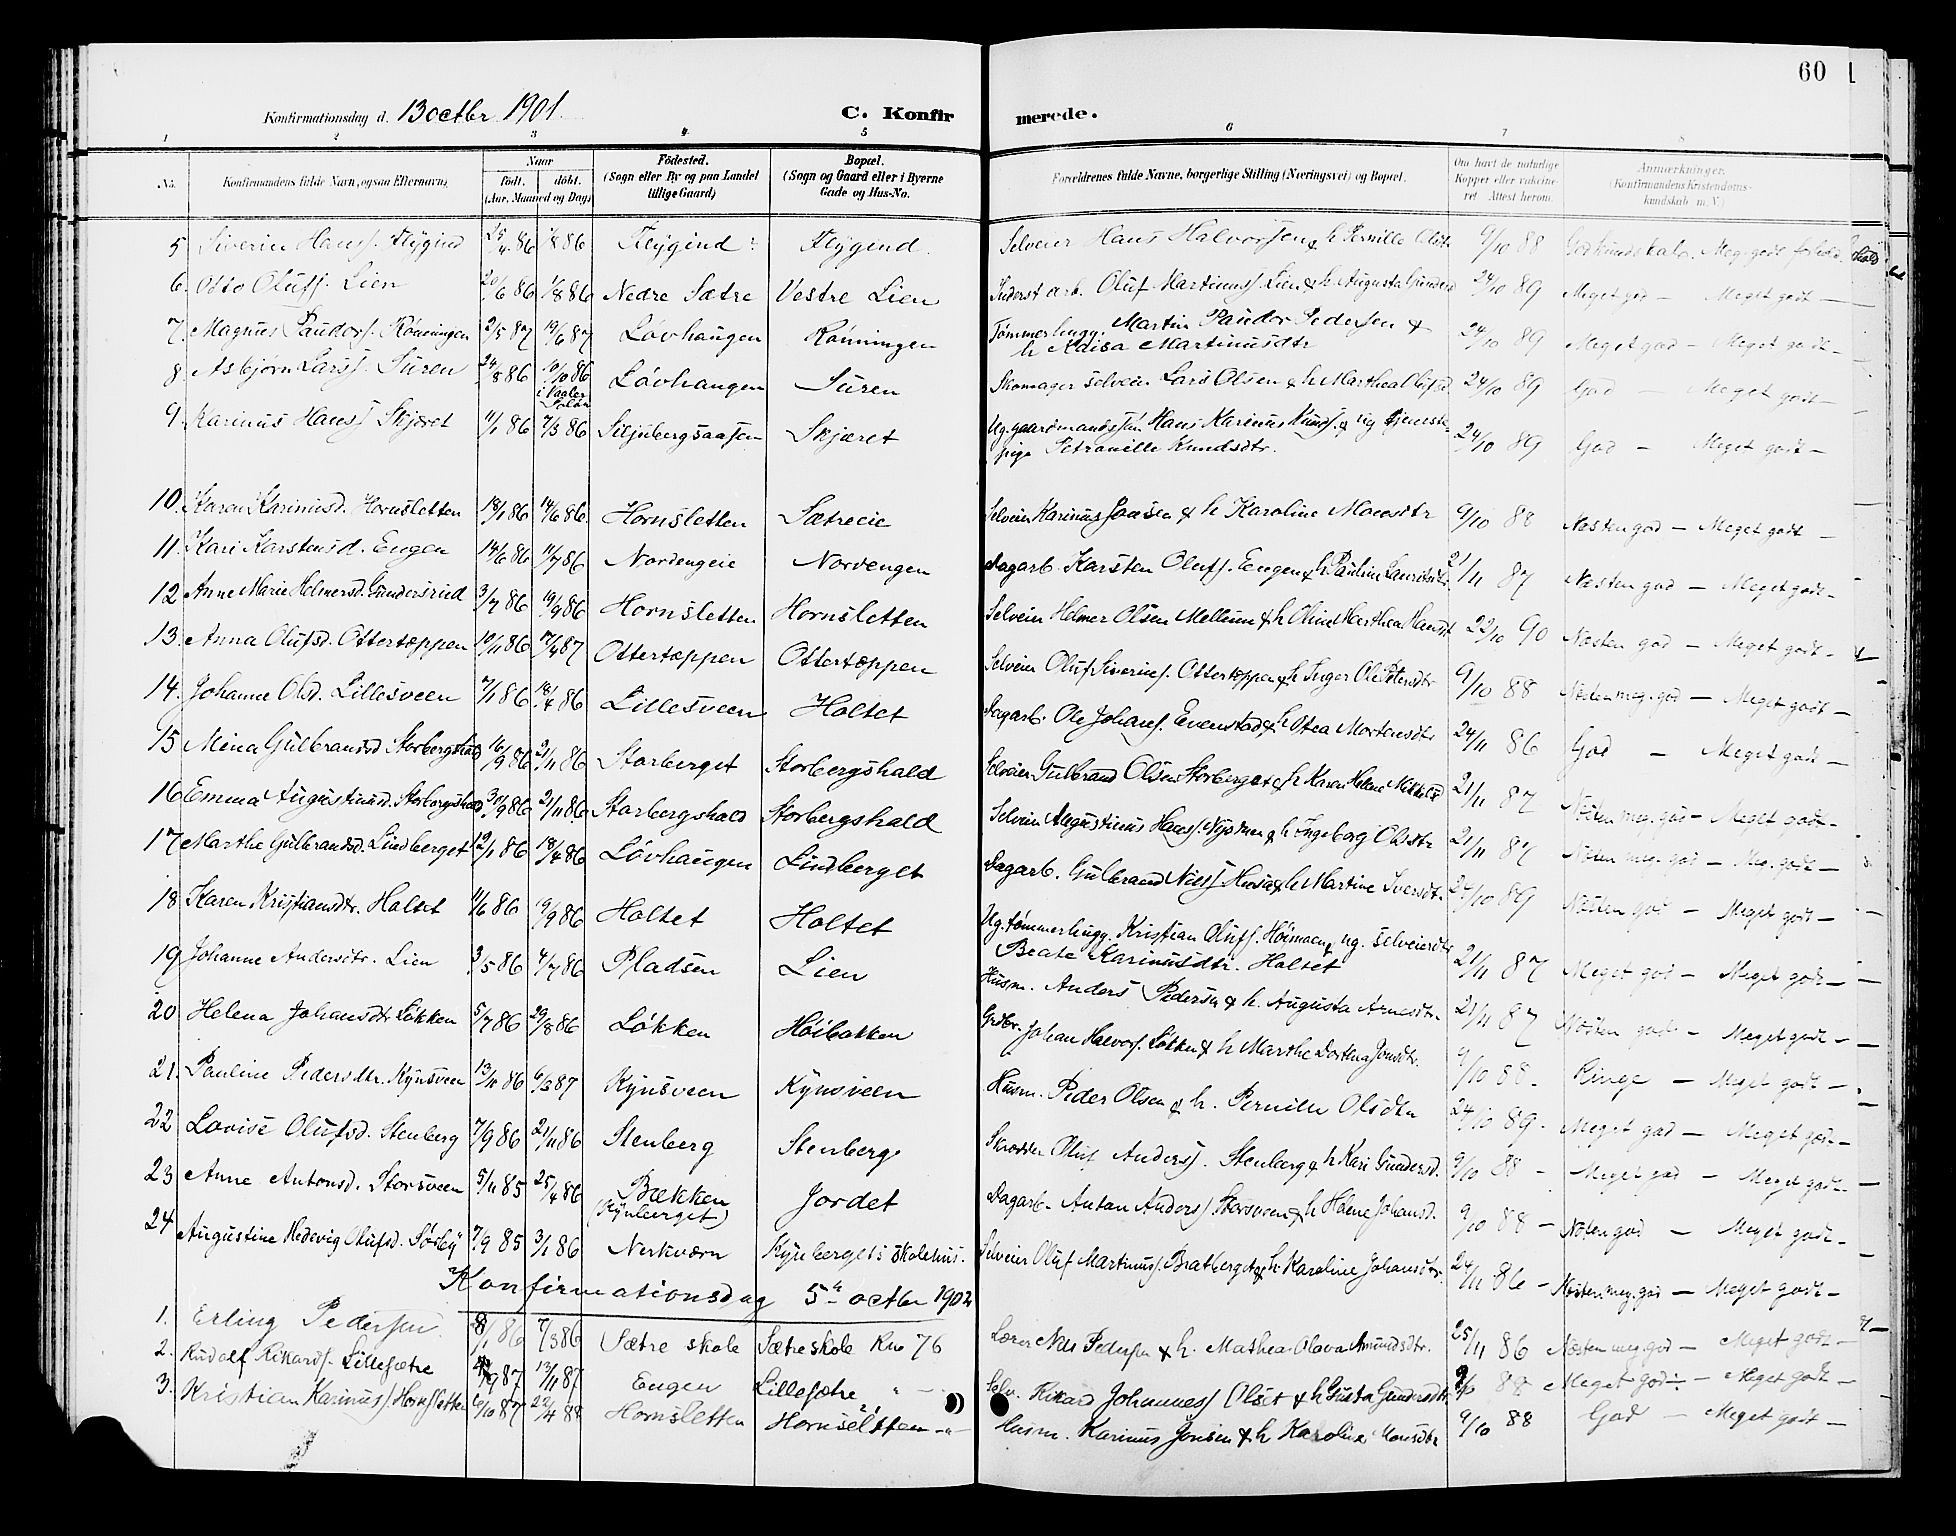 60
Konfirmationsdag d. 13 octbr 1901. C. Konfirmerede.
1 2 3 4 5 6 7 8
No. Konfirmandens fulde Navn, ogsaa Efternavn. Naar födt. döbt. (Aar, Maaned og Dag) Födested. (Sogn eller By og paa Landet tillige Gaard) Bopæl. (Sogn og Gaard eller i Byerne Gade og Hus-No. Forældrenes fulde Navne, borgerlige Stilling (Næringsvei) og Bopæl. Om havt de naturlige Kopper eller vakcineret. Attest herom. Anmærkninger. (Konfirmandens Kristendomskundskab m. V.)
5 Siverin Hanss. Flÿgind 25/4 86 1/8 86 Flÿgind Flÿgind. Selveier Hans Halvorsen & h Pernille 9/10 88 God kundskab. Meg. godt forhold.
6. Otto Olufs. Lien 20/6 86 1/8 86 Nedre Sætre Vestre Lien Inderst arb. Oluf Martinuss. Lien & h Augusta 24/10 89 Meget god — Meget godt —
7. Magnus Paudors. Rönningen 2/5 87 19/6 87 Lövhaugen Rönningen Tömmerhugg. Martin Paudor Pedersen & h Kaisa Martinusdtr 24/10 89 Meget god — Meget godt —
8. Asbjörn Larss. Suren 24/8 86 10/10 86 i Vaaler Solör Lövhaugen Suren Skomager selveier Lars Olsen & h Marthea 24/10 89 God — Meget godt —
9 Karinus Hanss Skjæret 11/1 86 7/3 86 Siljubergsaasen Skjæret Ug. gaardmandssön Hans Karinus Knuds. & ug tjenestepige Petronille Knudsdtr. 24/10 89 God — Meget godt —
10. Karen Karinusd. Hornsletten 18/1 86 14/6 86 Hornsletten Sætreeie Selveier Karinus Jonsen & h Karoline Monsdtr 9/10 88 Næsten god — Meget godt —
11. Kari Karstensd. Engen 14/6 86 11/7 86 Nordengeie Norvengen Dagarb. Karsten Olufs. Engen & h Pauline Lauritsdtr. 21/11 87 Næsten god — Meget godt —
12 Anne Marie Helmersd. Gundersrud 3/7 86 19/9 86 Hornsletten Hornsletten Selveier Helmer Olsen Mellum & h Oline Marthea Hansdt 22/10 90 Næsten god — Meget godt —
13. Anna Olufsd. Ottertoppen 10/11 86 7/4 87 Ottertoppen Ottertoppen Selveier Oluf Siverins. Ottertoppen & h Inger Oline Petersdtr 9/10 88 Næsten meg. god — Meget godt —
14. Johanne Olsd. Lillesveen 7/1 86 18/4 86 Lillesveen Holtet Dagarb. Ole Johans. Evenstad & h Otea Mortensdtr 24/11 86 God — Meget godt —
15 Mina Gulbrandsd Storbergshald 16/9 86 21/11 86 Storberget Storbergshald Selveier Gulbrand Olsen Storberget & h Karen Helene 21/11 87 Næsten meg. god — Meget godt —
16 Emma Augustinusd. Storbergshald 30/9 86 21/11 86 Storbergshald Storbergshald Selveier Augustinus Hanss. & h Ingeborg Olsdtr 21/11 87 Næsten meg. god — Meg. godt —
17 Marthe Gulbrandsd. Lindberget 12/1 86 18/4 86 Lövhaugen Lindberget Dagarb. Gulbrand Nilss & h Martine Iversdt. 24/10 89 Næsten god — Meget godt —
18 Karen Kristiansdtr. Holtet 11/6 86 19/9 86 Holtet Holtet Ug. tömmerhugg. Kristian Olufs. & ug. selveierdtr Beate Karinusdtr. Holtet 21/11 87 Meget god — Meget godt —
19 Johanne Andersdtr. Lien 3/5 86 4/7 86 Pladsen Lien Husm. Anders Pedersen & h. Augusta Arnesdtr. 21/11 87 Næsten god — Meget godt —
20 Helena Johansdtr Lökken 5/7 86 29/8 86 Lökken Höibakken Grdbr. Johan Halvors. Lökken & h Marthe Dorthea Jonsdtr. 9/10 88. Ringe — Meget godt —
21. Pauline Pedersdtr. Kÿnsveen 13/11 86 6/3 87 Kÿnsveen Kÿnsveen Husm. Peder Olsen & h. Pernille Olsdtr 24/10 89. Meget god — Meget godt —
22 Lovise Olufsd. Stenberg 7/9 86 21/11 86 Stenberg Stenberg Skrædder Oluf Anderss. Stenberg & h Kari Gundersd. 9/10 88 — Meget god — Meget godt —
23 Anne Antonsd. Storsveen 5/11 85 25/4 86 Bækken (Kÿnberget) Jordet Dagarb. Anton Anderss Storsveen & h Helene Johansd. 9/10 88 — Næsten god — Meget godt —
24 Augustine Hedevig Olufsd. Sörbÿ 7/9 85 3/1 86 Nerkværn Kÿnbergets skolehus. Selveier Oluf Martinuss. Bratberget & h. Karoline Johansdtr. 24/11 86 — Næsten meg. god — Meget godt —
Konfirmationsdag 5te octbr 1902
1. Erling Pedersen 28/1 86 7/3 86 Sætre skole Sætre skole Kno 76 Lærer Nils Pedersen & h. Mathea Olava Amundsdtr. 25/11 86 Næsten meg god — Meget godt —
2. Rudolf Rikards. Lillesætre 9 87 13/11 87 Engen Lillesætre " — Selv. Rikard Johanness Olset & h Gusta Gundersdtr 9/10 88 Meget god — Meget godt —
3. Kristian Karinuss. Hornsletten 6/10 87 22/4 88 Hornsletten Hornsletten — " — Husm. Karinus Jonsen & h Karoline Monsdtr 9/10 88 God — Meget godt —